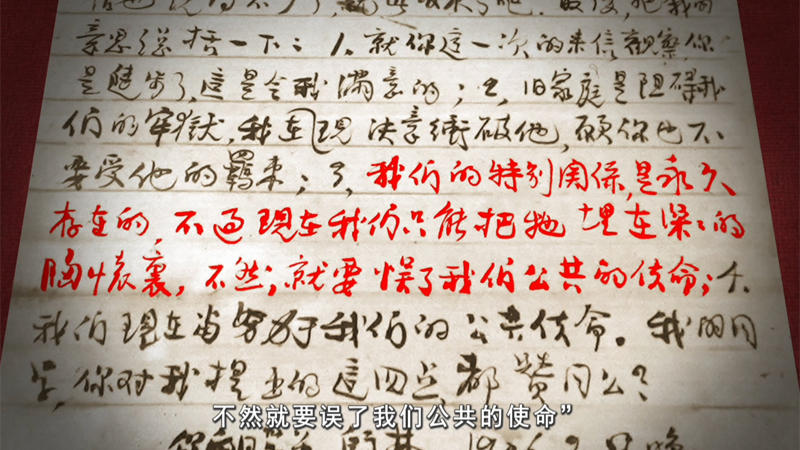 意思总括一下：1,就你這一次的来信觀察,你
是進步了,這是令我滿意的；2,旧家庭是阻碍我
们的牢獄,我在現决意衝破他,願你也不
要受他的羈束；3,我们的特别関係,是永久
存在的,不过現在我们只能把她埋在深深的
胸懷裏,不然；就要悮了我们公共的使命；4.
我们現在当努力于我们的公共使命。我的同
学,你对我提出的這四点,都贊同么？
不然就要误了我们公共的使命”